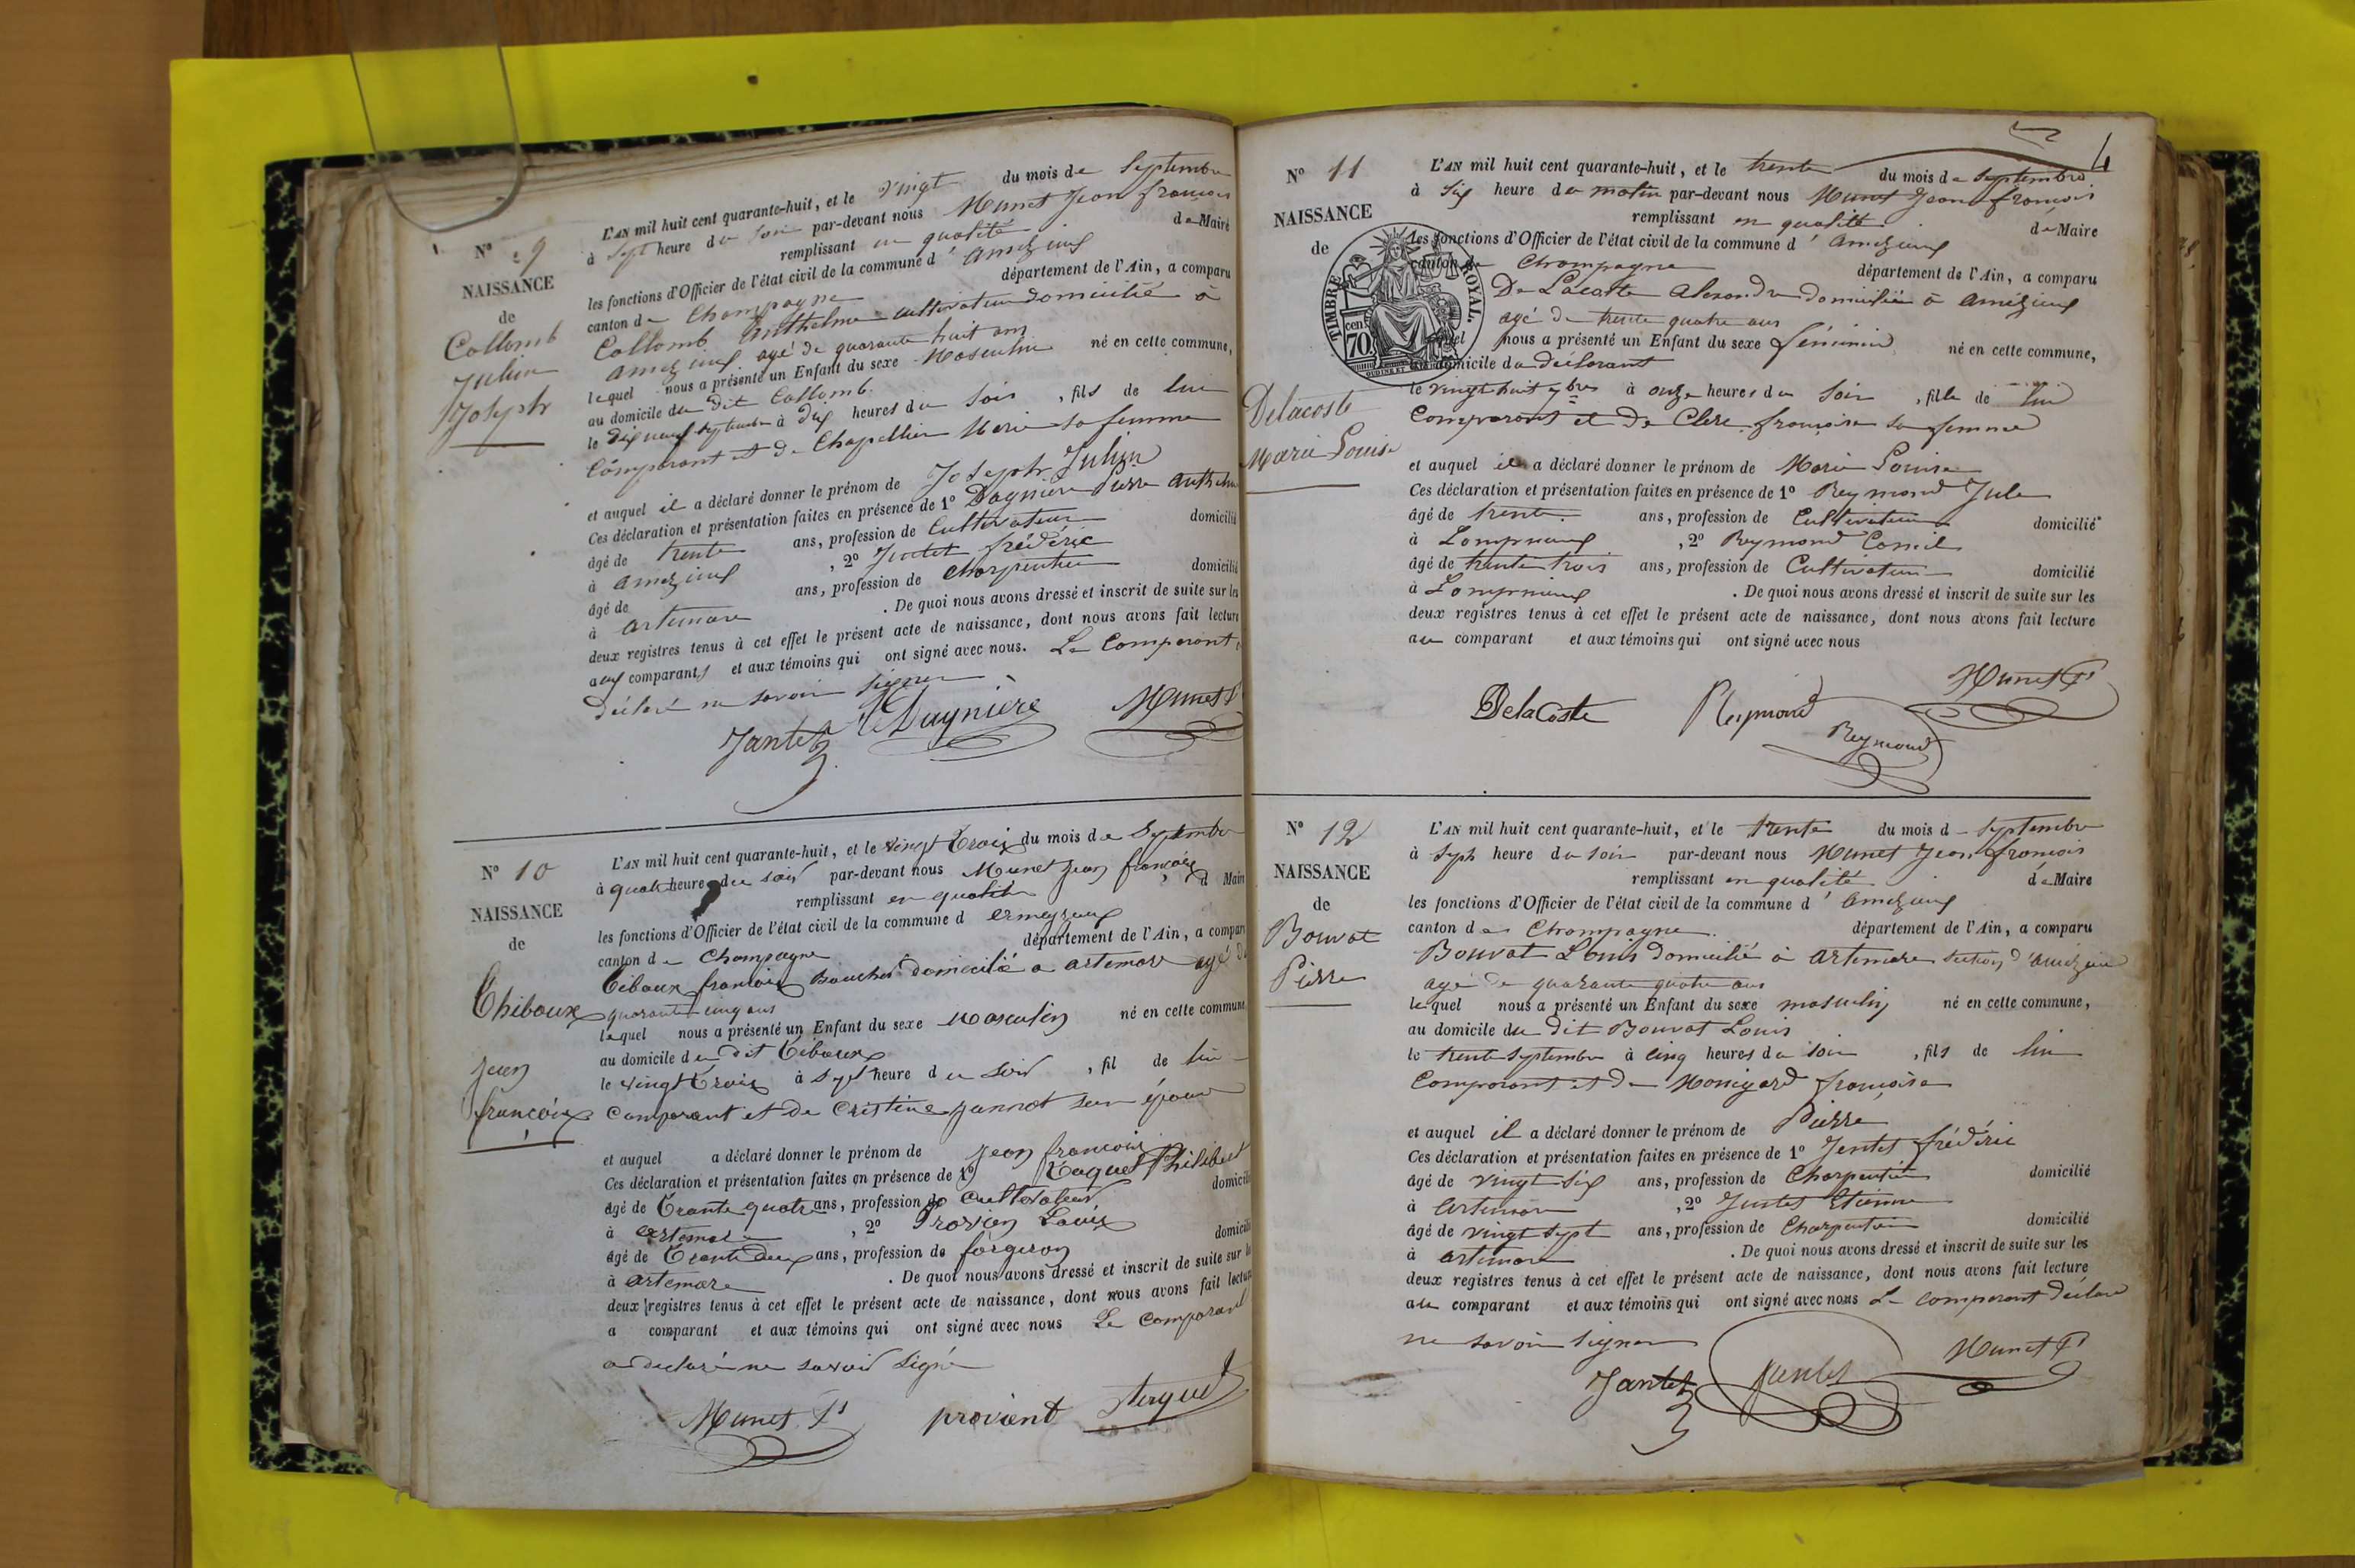 N° 9
NAISSANCE
de
Collomb
Julien
Joseph
L'AN mil huit cent quarante-huit, et le vingt du mois de Septembre
à Sept heure du soir par-devant nous Munet Jean françois
remplissant en qualité de Maire
les fonctions d'Officier de l'état civil de la commune d' amezieux
canton de Champagne département de l'Ain, a comparu
Collomb Anthelme cultivateur domicilié à
amezieux agé de quarante huit ans
lequel nous a présenté un Enfant du sexe Masculin né en cette commune,
au domicile du dit Collomb.
le dix neuf septembre à dix heures du soir, fils de lui
Comparant et de Chapellier Marie sa femme
et auquel il a déclaré donner le prénom de Joseph Julien
Ces déclaration et présentation faites en présence de 1° Dagnière Pierre Anthelme
âgé de trente ans, profession de Cultivateur domicilié
à amezieux, 2° Jantet frédéric
âgé de ans, profession de Charpentier domicilié
à artemare. De quoi nous avons dressé et inscrit de suite sur les
deux registres tenus à cet effet le présent acte de naissance, dont nous avons fait lecture
aux comparants et aux témoins qui ont signé avec nous. Le Comparant
déclaré ne savoir signer
Jantet Dagnière Munet
N° 10
NAISSANCE
de
Thiboux
jean
françois
L'AN mil huit cent quarante-huit, et le vingt trois du mois de Septembre
à quatr heure du soir par-devant nous Munet jean françois
remplissant en qualité d Maire
les fonctions d'Officier de l'état civil de la commune d
canton de Champagne département de l'Ain, a comparu
Tiboux françois domicilié a artemare agé de
quarante cinq ans
lequel nous a présenté un Enfant du sexe Masculin né en cette commune
au domicile du dit Tiboux
le vingt trois à sept heure du soir, fil de lui
Comparant et de Cristine jannot son épouse
et auquel a déclaré donner le prénom de jean françois
Ces déclaration et présentation faites en présence de 1° Philibert
âgé de trante quatre ans, profession de cultivateur domicilié
à artemare, 2° Louis
âgé de trante deux ans, profession de forgeron domicilié
à artemare. De quoi nous avons dressé et inscrit de suite sur les
deux registres tenus à cet effet le présent acte de naissance, dont nous avons fait lecture
a comparant et aux témoins qui ont signé avec nous Le Comparant
a declaré ne savoir signé
Munet provient
4
N° 11
NAISSANCE
de
Delacoste
Marie Louise
TIMBRE ROYAL.
70 cen.
L'AN mil huit cent quarante-huit, et le trente du mois de Septembre
à Six heure du matin par-devant nous Munet Jean françois
remplissant en qualité de Maire
les fonctions d'Officier de l'état civil de la commune d' amezieux
canton de Champagne département de l'Ain, a comparu
De Lacoste Alexandre domicilié à amézieux
agé de trente quatre ans
lequel nous a présenté un Enfant du sexe féminin né en cette commune,
au domicile du déclarant
le vingt huit 7bre à onze heures du soir, fille de lui
Comparant et De Clerc françoise sa femme
et auquel il a déclaré donner le prénom de Marie Louise
Ces déclaration et présentation faites en présence de 1° Reymond Jule
âgé de trente ans, profession de Cultivateur domicilié
à Lompnieux, 2° Reymond Camil
âgé de trente trois ans, profession de Cultivateur domicilié
à Lompnieux. De quoi nous avons dressé et inscrit de suite sur les
deux registres tenus à cet effet le présent acte de naissance, dont nous avons fait lecture
au comparant et aux témoins qui ont signé avec nous
Delacoste Reymond Munet
Reymond
N° 12
NAISSANCE
de
Bouvat
Pierre
L'AN mil huit cent quarante-huit, et le trente du mois d Septembre
à Sept heure du soir par-devant nous Munet Jean françois
remplissant en qualité de Maire
les fonctions d'Officier de l'état civil de la commune d' amezieux
canton de Champagne. département de l'Ain, a comparu
Bouvat Louis domicilié à artemare section d'amezieu
agé de quarante quatre ans
lequel nous a présenté un Enfant du sexe masculin né en cette commune,
au domicile du dit Bouvat Louis
le trente Septembre à cinq heures du soir, fils de lui
Comparant et de françoise
et auquel il a déclaré donner le prénom de Pierre
Ces déclaration et présentation faites en présence de 1° Jantet frédéric
âgé de vingt six ans, profession de Charpentier domicilié
à artemare, 2° Jantet Etienne
âgé de vingt sept ans, profession de Charpentier domicilié
à artemare. De quoi nous avons dressé et inscrit de suite sur les
deux registres tenus à cet effet le présent acte de naissance, dont nous avons fait lecture
au comparant et aux témoins qui ont signé avec nous Le comparant déclare
ne savoir signer
Jantet Jantet Munet